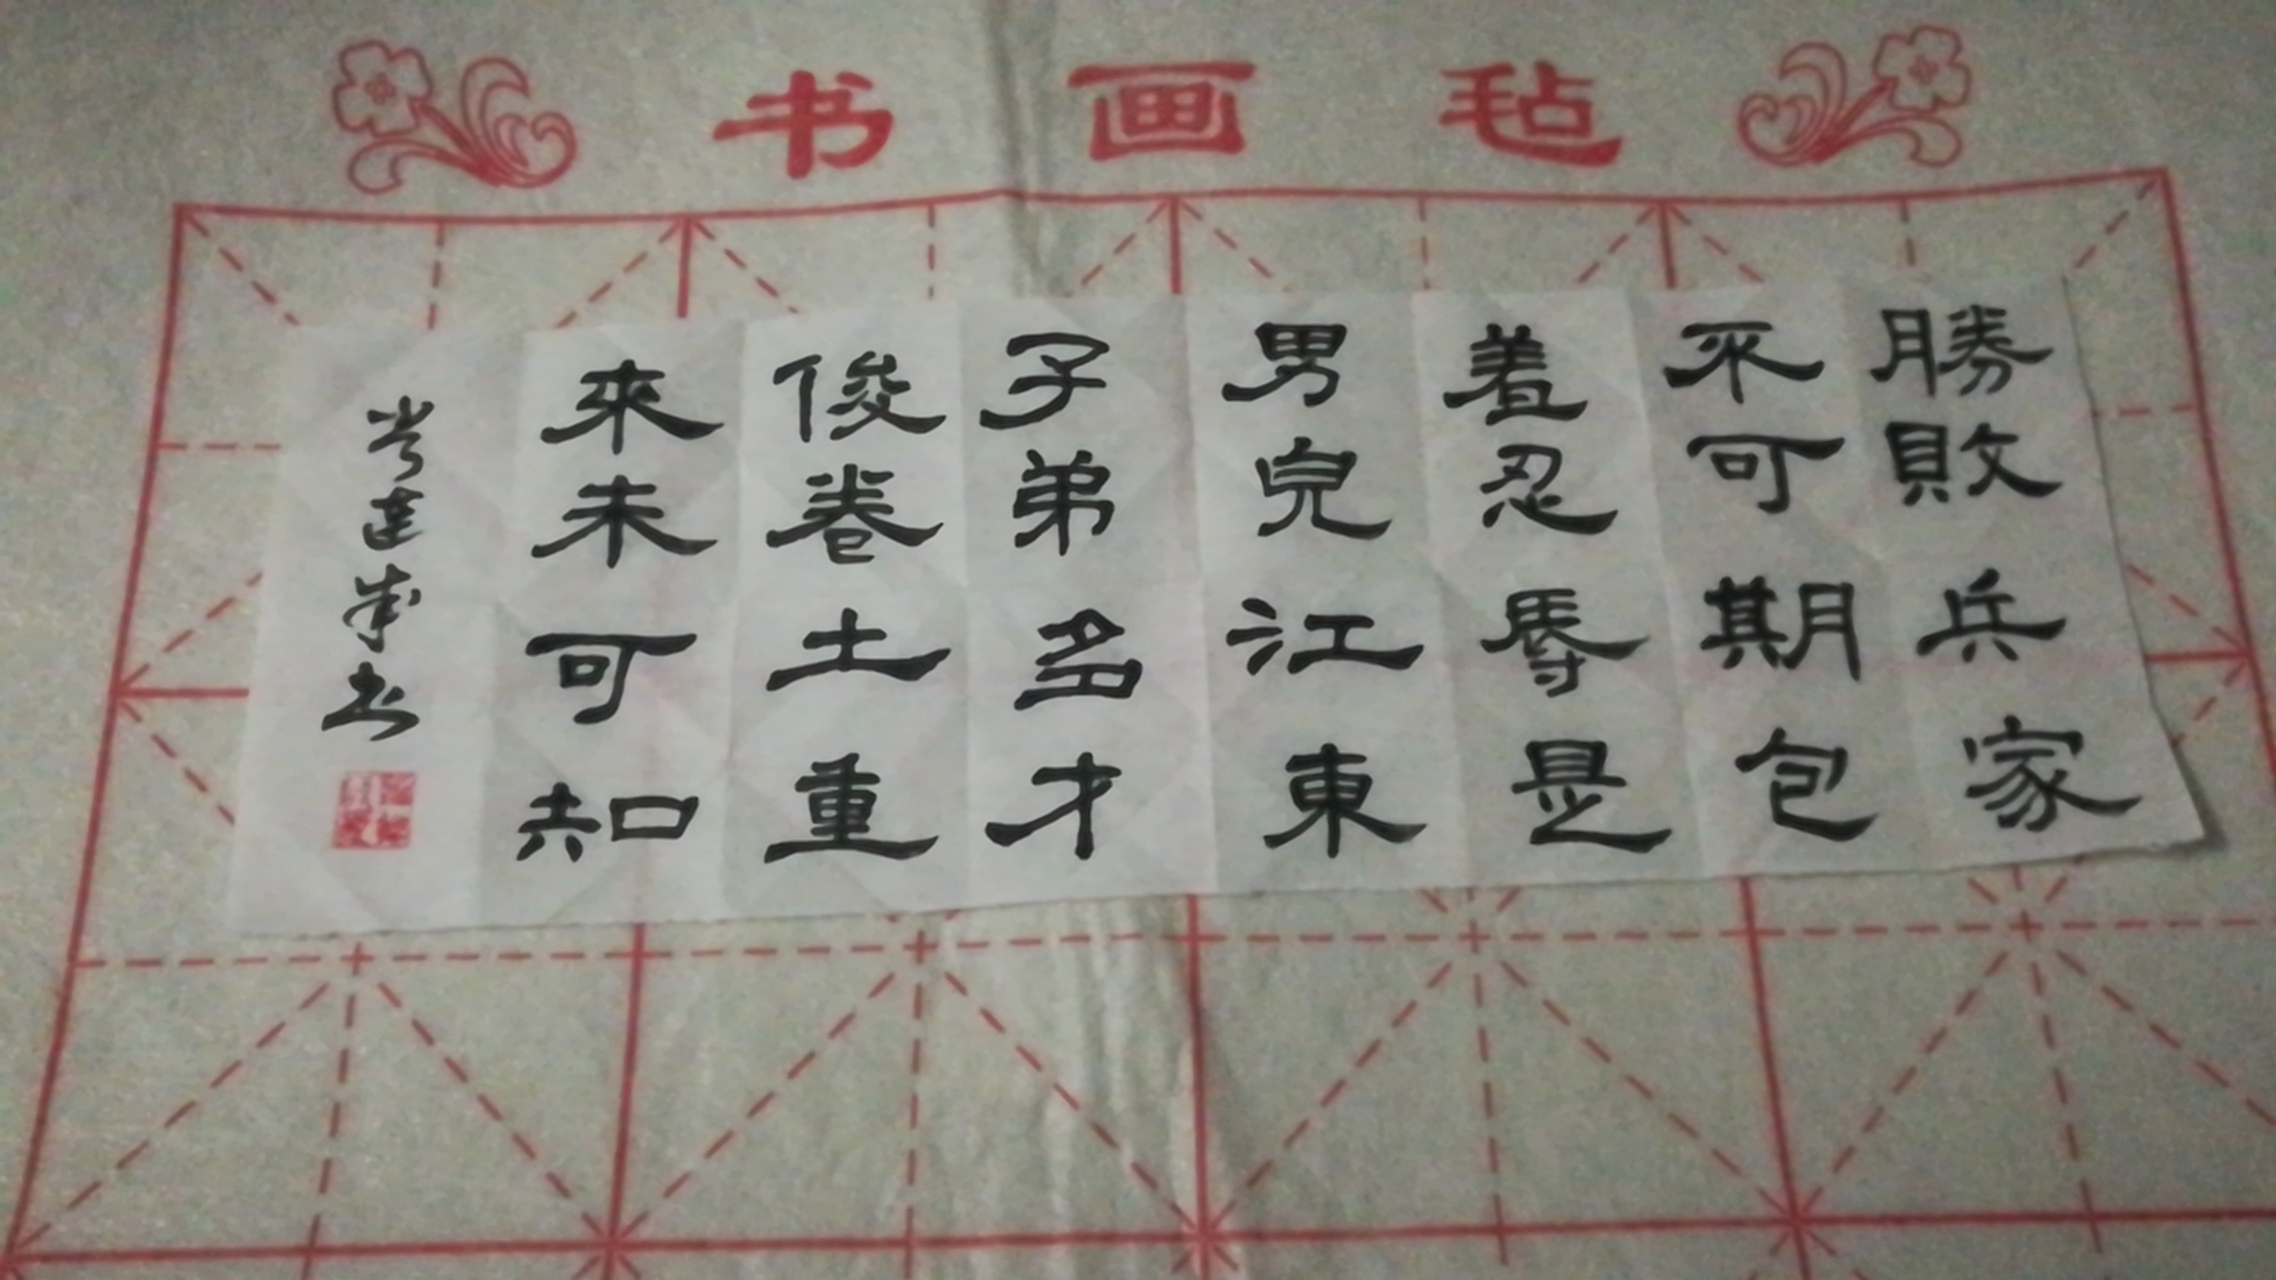 书画毡
勝敗兵家
不可期包
羞忍辱是
男兒江東
子弟多才
俊卷土重
來未可知